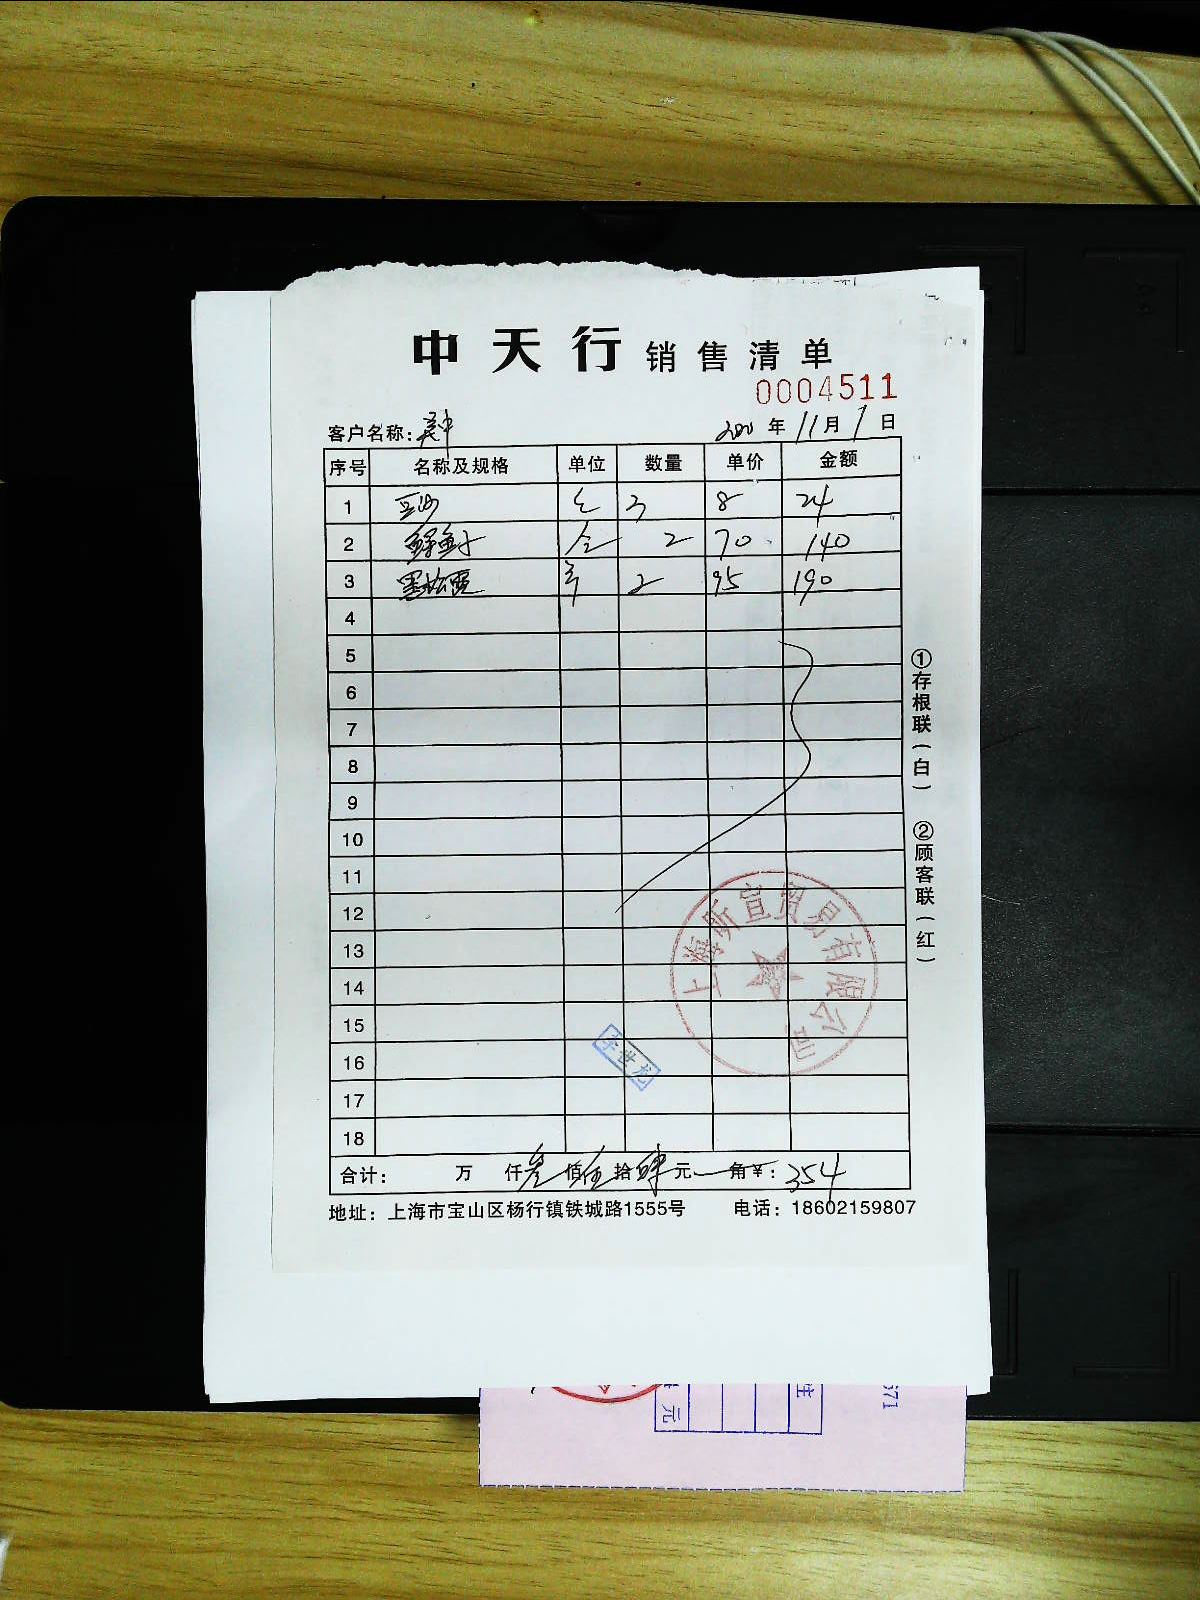 中天行 销售清单
0004511
客户名称：
年 11 月 1 日
序号 名称及规格 单位 数量 单价 金额
1 豆沙 3 8 24
2 鲜鱼子 2 70 140
3 黑松露 2 95 190
4
5
6
7
8
9
10
11
12
13
14
15
16
17
18
合计： 万 仟 叁 佰 伍 拾 肆 元 角 ¥：354
地址：上海市宝山区杨行镇铁城路1555号 电话：18602159807
①存根联（白） ②顾客联（红）
上海昕宣贸易有限公司
李世龙
元
571